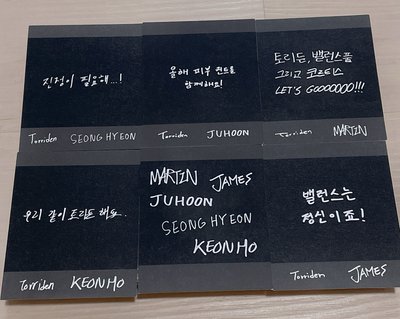 진정이 필요해...!
Torriden SEONGHYEON
올해 피부 힌트를
함께해요!
Torriden JUHOON
토리든, 밸런스풀
그리고 코르티스
LET'S GOOOOOOO!!!
Torriden MARTIN
우리 같이 토리든 해요.
Torriden KEONHO
MARTIN JAMES
JUHOON
SEONGHYEON
KEONHO
밸런스는
정신이죠!
Torriden JAMES